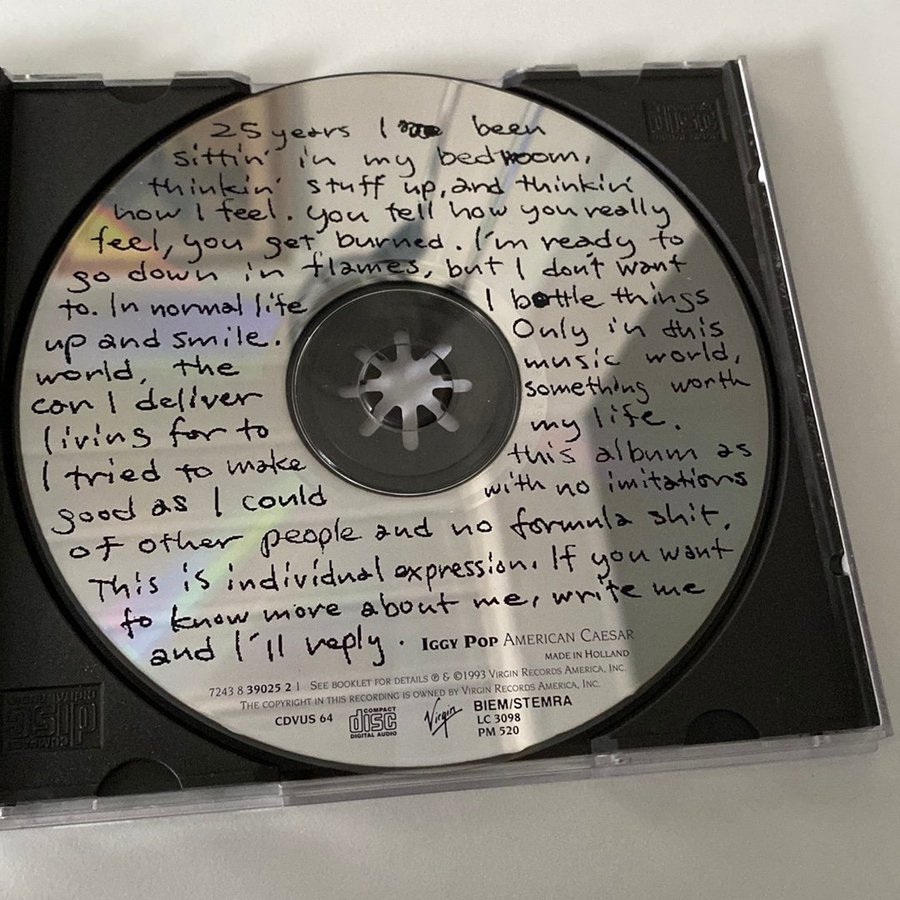 25 years I been
sittin' in my bedroom,
thinkin' stuff up, and thinkin'
how I feel. You tell how you really
feel, you get burned. I'm ready to
go down in flames, but I don't want
to. In normal life I bottle things
up and smile. Only in this
world, the music world,
can I deliver something worth
living for to my life.
I tried to make this album as
good as I could with no imitations
of other people and no formula shit.
This is individual expression. If you want
to know more about me, write me
and I'll reply. IGGY POP AMERICAN CAESAR
MADE IN HOLLAND
7243 8 39025 2 1 SEE BOOKLET FOR DETAILS ℗ & ©1993 VIRGIN RECORDS AMERICA, INC.
THE COPYRIGHT IN THIS RECORDING IS OWNED BY VIRGIN RECORDS AMERICA, INC.
CDVUS 64 COMPACT disc DIGITAL AUDIO Virgin BIEM/STEMRA
LC 3098
PM 520